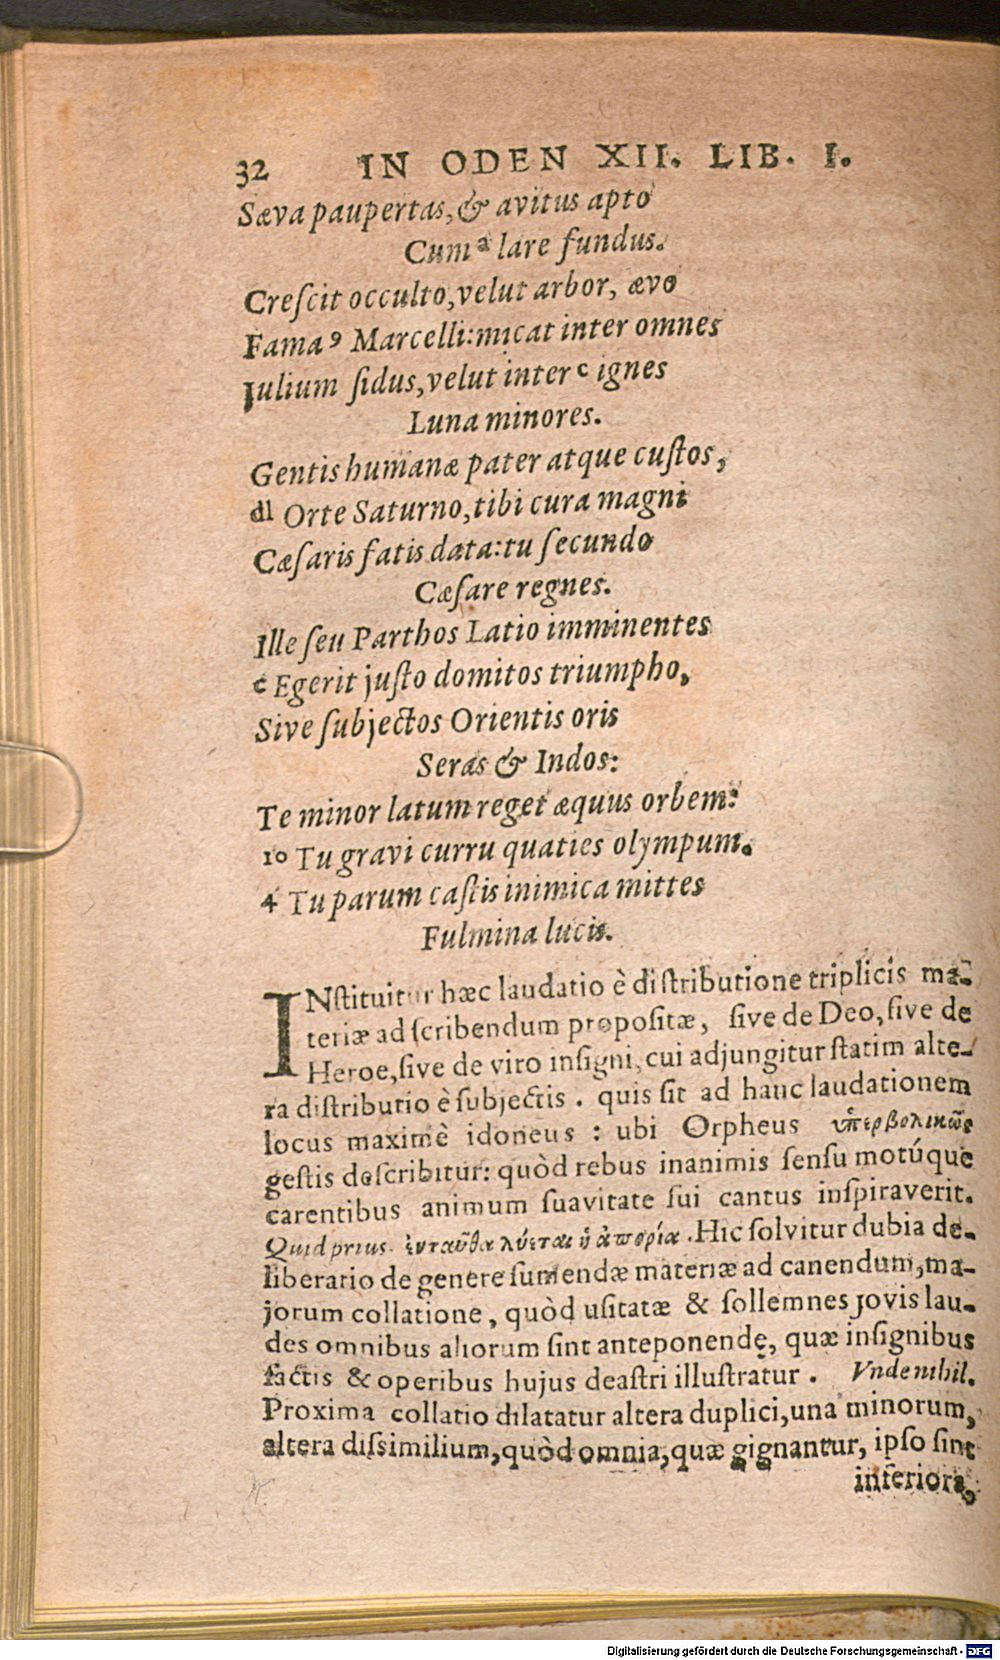 32 IN ODEN XII. LIB. I.
Sæva paupertas, & avitus apto
Cum a lare fundus.
Creſcit occulto, velut arbor, ævo
Fama 9 Marcelli: micat inter omnes
Julium ſidus, velut inter c ignes
Luna minores.
Gentis humanæ pater atque cuſtos,
dl Orte Saturno, tibi cura magni
Cæſaris fatis data: tu ſecundo
Cæſare regnes.
Ille ſeu Parthos Latio imminentes
c Egerit juſto domitos triumpho,
Sive ſubjectos Orientis oris
Seras & Indos:
Te minor latum reget æquus orbem:
10 Tu gravi curru quaties olympum.
4 Tu parum caſtis inimica mittes
Fulmina lucis.
INſtituitur hæc laudatio è diſtributione triplicis ma-
teriæ ad ſcribendum propoſitæ, ſive de Deo, ſive de
Heroe, ſive de viro inſigni, cui adjungitur ſtatim alte-
ra diſtributio è ſubjectis. quis ſit ad hanc laudationem
locus maximè idoneus : ubi Orpheus ὑπερβολικῶς
geſtis deſcribitur: quòd rebus inanimis ſenſu motúque
carentibus animum ſuavitate ſui cantus inſpiraverit.
Quid prius. ἐνταῦθα λύεται ἡ ἀπορία. Hic ſolvitur dubia de-
liberatio de genere ſumendæ materiæ ad canendum, ma-
jorum collatione, quòd uſitatæ & ſollemnes Jovis lau-
des omnibus aliorum ſint anteponendę, quæ inſignibus
factis & operibus hujus deaſtri illuſtratur. Vnde nihil.
Proxima collatio dilatatur altera duplici, una minorum,
altera diſsimilium, quòd omnia, quæ gignantur, ipſo ſint
inferiora,
Digitalisierung gefördert durch die Deutsche Forschungsgemeinschaft - DFG